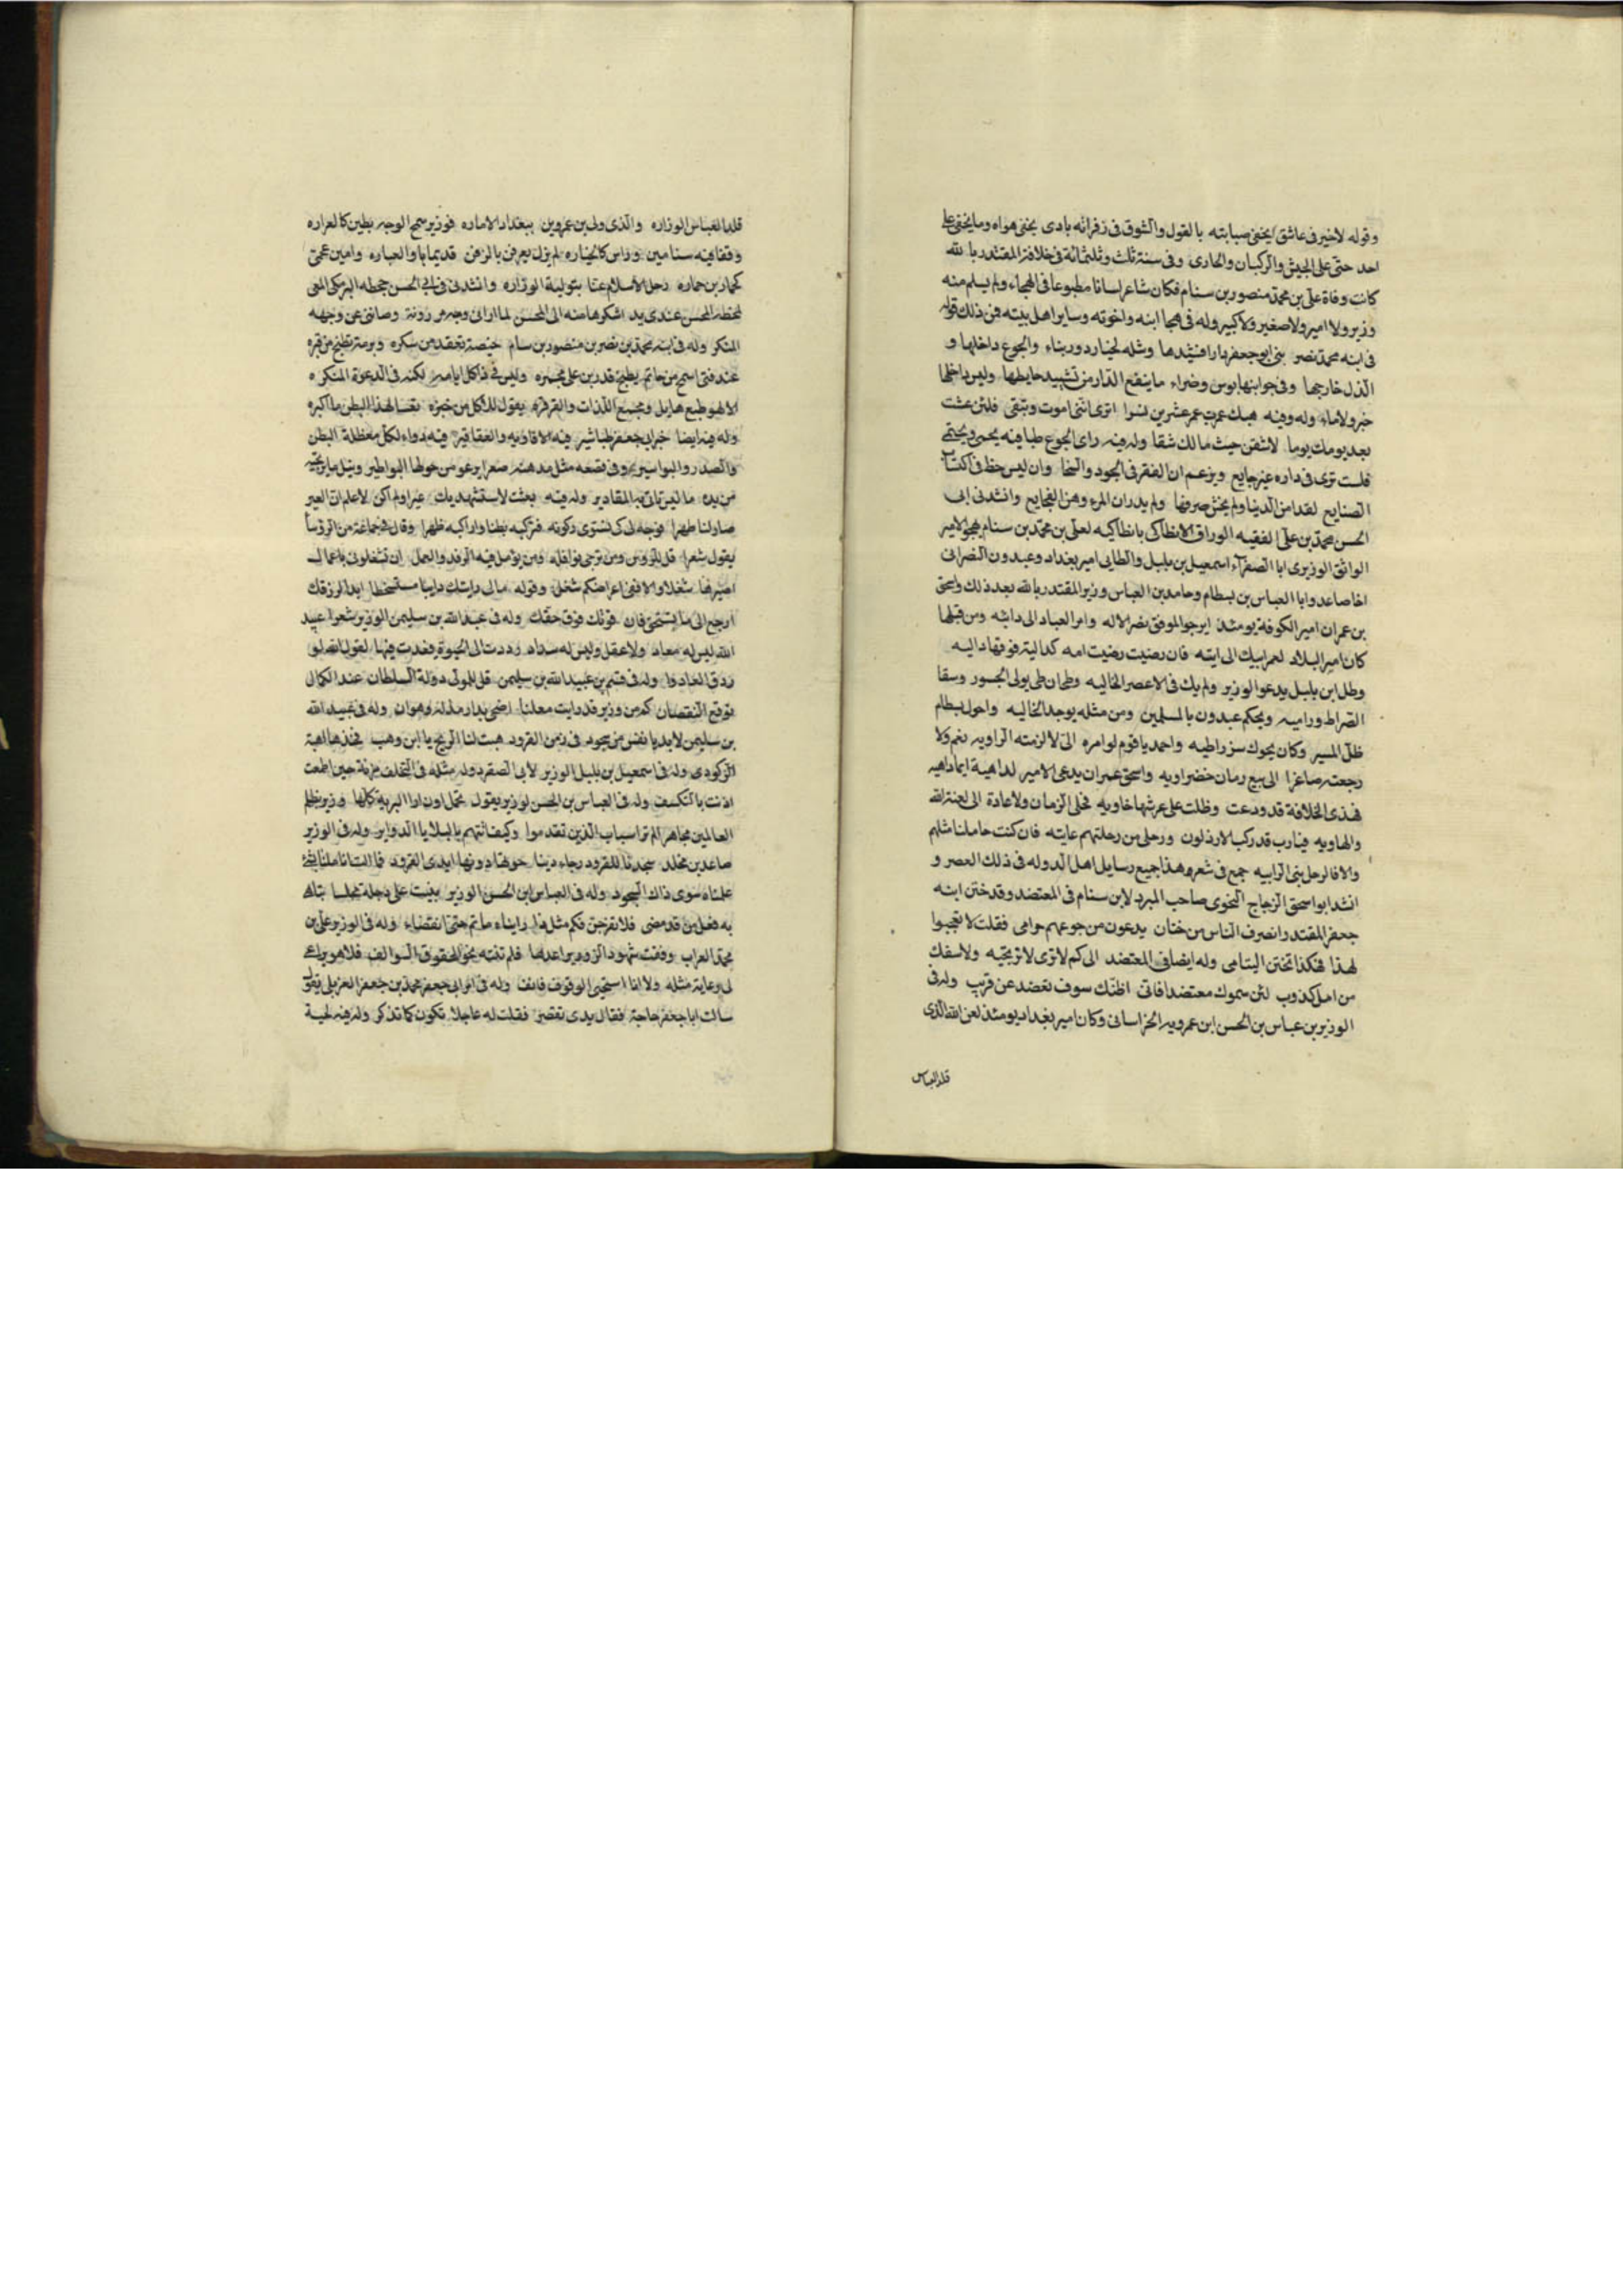 وقوله لا خير فى عاشق يخفى صبابته بالقول والشوق فى زفراته بادى يخفى هواه وما يخفى على
احد حتى على الجيش والركبان والحادى وفى سنة ثلث وثلثمائة فى خلافة المقتدر بالله
كانت وفاة على بن محمد منصور بن سنام فكان شاعرا لسانا مطبوعا فى الهجاء ولم يسلم منه
وزير ولا امير ولا صغير ولا كبير وله فى هجا ابنه واخوته وساير اهل بيته فمن ذلك قوله
فى ابنه محمد نصر بنى ابو جعفر دارا فشيدها ومثله لخيار دور بناء والجوع داخلها و
الذل خارجها وفى جوانبها بوس وضراء ما ينفع الدار من تشييد حايطها وليس داخلها
خبز ولا ماء وله وفيه هبك عمرت عمر عشرين نسوا اترى اننى اموت وتبقى فلئن عشت
بعد يومك يوما لاشقن جيب مالك شقا وله فيه راى الجوع طبا فيه يحمى ويحتمى
فلست ترى فى داره غير جايع ويزعم ان الفقر فى الجود والسخا وان ليس حظ فى اكتساب
الصنايع لقد امن الدنيا ولم يخش صرفها ولم يدر ان المرء رهن الفجايع وانشدنى ابى
الحسن محمد بن على الفقيه الوراق الانطاكى بانطاكيه لعلى بن محمد بن سنام يهجو الامير
الواثق الوزيرى ابا الصقر اسمعيل بن بلبل والطايى امير بغداد وعبدون النصرانى
اخا صاعد وابا العباس بن بسطام وحامد بن العباس وزير المقتدر بالله بعد ذلك واسحق
بن عمران امير الكوفة يومئذ ايرجو الموفق نصر الاله وامر العباد الى دانيه ومن قبلها
كان امير البلاد لعمر ابيك الى ابنه فان رضيت رضيت امه كدالية فوقها داليه
وظل ابن بلبل يدعو الوزير ولم يك فى الاعصر الخاليه وطحان طى يولى الجسور وسقا
الصراط وراميه ويحكم عبدون بالمسلمين ومن مثله يوجد الخاليه واحول بسطام
ظل المسير وكان يحوك سزراطيه واحمد يا قوم لو امره الى لا لزمته الراويه نعم ولا
رجعته صاغرا الى بيع رمان خضراويه واسحق عمران يدعى الامير لداهية ايما داهيه
فهذى الخلافة قد ودعت وظلت على عرشها خاويه فخلى الزمان ولا عادة الى لعنة الله
والهاويه فيا رب قد ركب الارذلون ورحلى من رحلتهم عايته فان كنت حاملنا مثلهم
والا فارحل بنى الرابيه جمع فى شعره هذا جميع رسايل اهل الدوله فى ذلك العصر و
انشد ابو اسحق الزجاج النحوى صاحب المبرد لابن سنام فى المعتضد وقد ختن ابنه
جعفر المقتدر وانصرف الناس من ختان يدعون من جوعهم حرامى فقلت لا تعجبوا
لهذا فهكذا تختن اليتامى وله ايضا فى المعتضد الى كم لا نرى لا نرتجيه ولا نسفك
من امل كذوب لئن سموك معتضدا فانى اظنك سوف تعضد عن قريب وله فى
الوزير بن عباس بن الحسن ابن عمرويه الخراسانى وكان امير بغداد يومئذ لعن الله الذى
قلد العباس
قلد العباس الوزاره والذى ولى بن عمروين ببغداد الاماره فوزير سمج الوجه بطين كالغراره
وقفا فيه سنامين وراس كالخياره لم يزل يعرفن بالزفن قديما با والعباره وامين عمى
كحمار بن حماره رحل الاسلام عنا بتولية الوزاره وانشدنى فى ابى الحسن جحظه البرمكى المغى
لجحظه المحسن عندى يد اشكرها منه الى المحسن لما ارانى وجه بر ذونه وصاننى عن وجهه
المنكر وله فى ابنه محمد بن نصر بن منصور بن سام خبيصة تعقد من سكره وبرمة تطبخ من قبره
عند فتى اسمح من حاتم يطبخ قدرين على مجمره وليس فى ذا كل ايامه لكنه فى الدعوة المنكره
وله فيه ايضا خبز ابى جعفر طباشير فيه الافاويه والعقاقير فيه دواء لكل معظلة البطن
من يده ما ليس تاتى به المقادير وله فيه بعثت لاستشهديك عيرا ولم اكن لاعلم ان العير
صار لنا صهرا فوجه لى كى نستوى ركوبه فتركبه بطنا واركبه ظهرا وقال فى جماعة من الروسا
يقول شعرا قل للروس ومن ترجى نوافله ومن يؤمل فيه الرفد والعمل ان تشغلونى باعمال
اصيرها شغلا والا ففى اعراضكم شغل وقوله مالى رايتك دايبا مستسخطا ابدا لرزقك
ارجع الى ما يستحق فان قوتك فوق حقك وله فى عبد الله بن سليمن الوزير شعرا عبيد
الله ليس له معاد ولا عقل وليس له سداد رددت الى الحيوة فعدت فيها لقول الله لو
ردوا لعادوا وله فى قثم بن عبيد الله بن سليمن قل للمولى دولة السلطان عند الكمال
توقع النقصان كم من وزير قد رايت معلنا اضحى بدار مذلة وهوان وله فى عبيد الله
بن سليمن لا بد يا نفس من سجود فى زمن القرود هبت لنا الريح يا ابن وهب فخذها اهبة
الركود وله فى اسمعيل بن بلبل الوزير لابى الصقر دوله مثله فى التخلف مزنة حين اطمعت
اذنت بالتكسف وله فى العباس بن الحسن لوزير يقول تحمل اوزار البرية كلها وزير بظلم
العالمين مجاهر الم تر اسباب الذين تقدموا وكيف اتتهم بالبلايا الدواير وله فى الوزير
صاعد بن مخلد سجدنا للقرود رجاء دينا حوتها دونها ايدى القرود فما انالت اناملنا بشئ
علمناه سوى ذاك السجود وله فى العباس ابن الحسن الوزير بنيت على دجلة مجلسا تباهى
به فعل من قد مضى فلا تفرحن فكم مثل هذا رايناه ما تم حتى انقضاء وله فى الوزير على بن
محمد الفرات وقفت شهود الزور براعدها فلم تنته نحو الحقوق السوالف فلا هو يراعى
لى رعاية مثله ولا انا استحى الوقوف فانف وله فى ابى جعفر محمد بن جعفر الغزيلى يقول
سالت ابا جعفر حاجة فقال يدى تقصر فقلت له عاجلا تكون كما تذكر وله فيه لحية